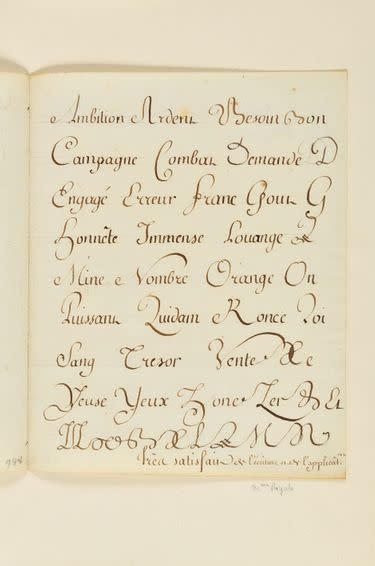 Ambition Ardent Besoin Bon
Campagne Combat Demande D
Engagé Erreur franc Gout G
Honnête Immense Louange L
Mine Nombre Orange On
Puissant Quidam Ronce Roi
Sang Tresor Vente
Yeuse Yeux Zone Zer & Et
très satisfait de l'écriture et de l'applicat.on
984